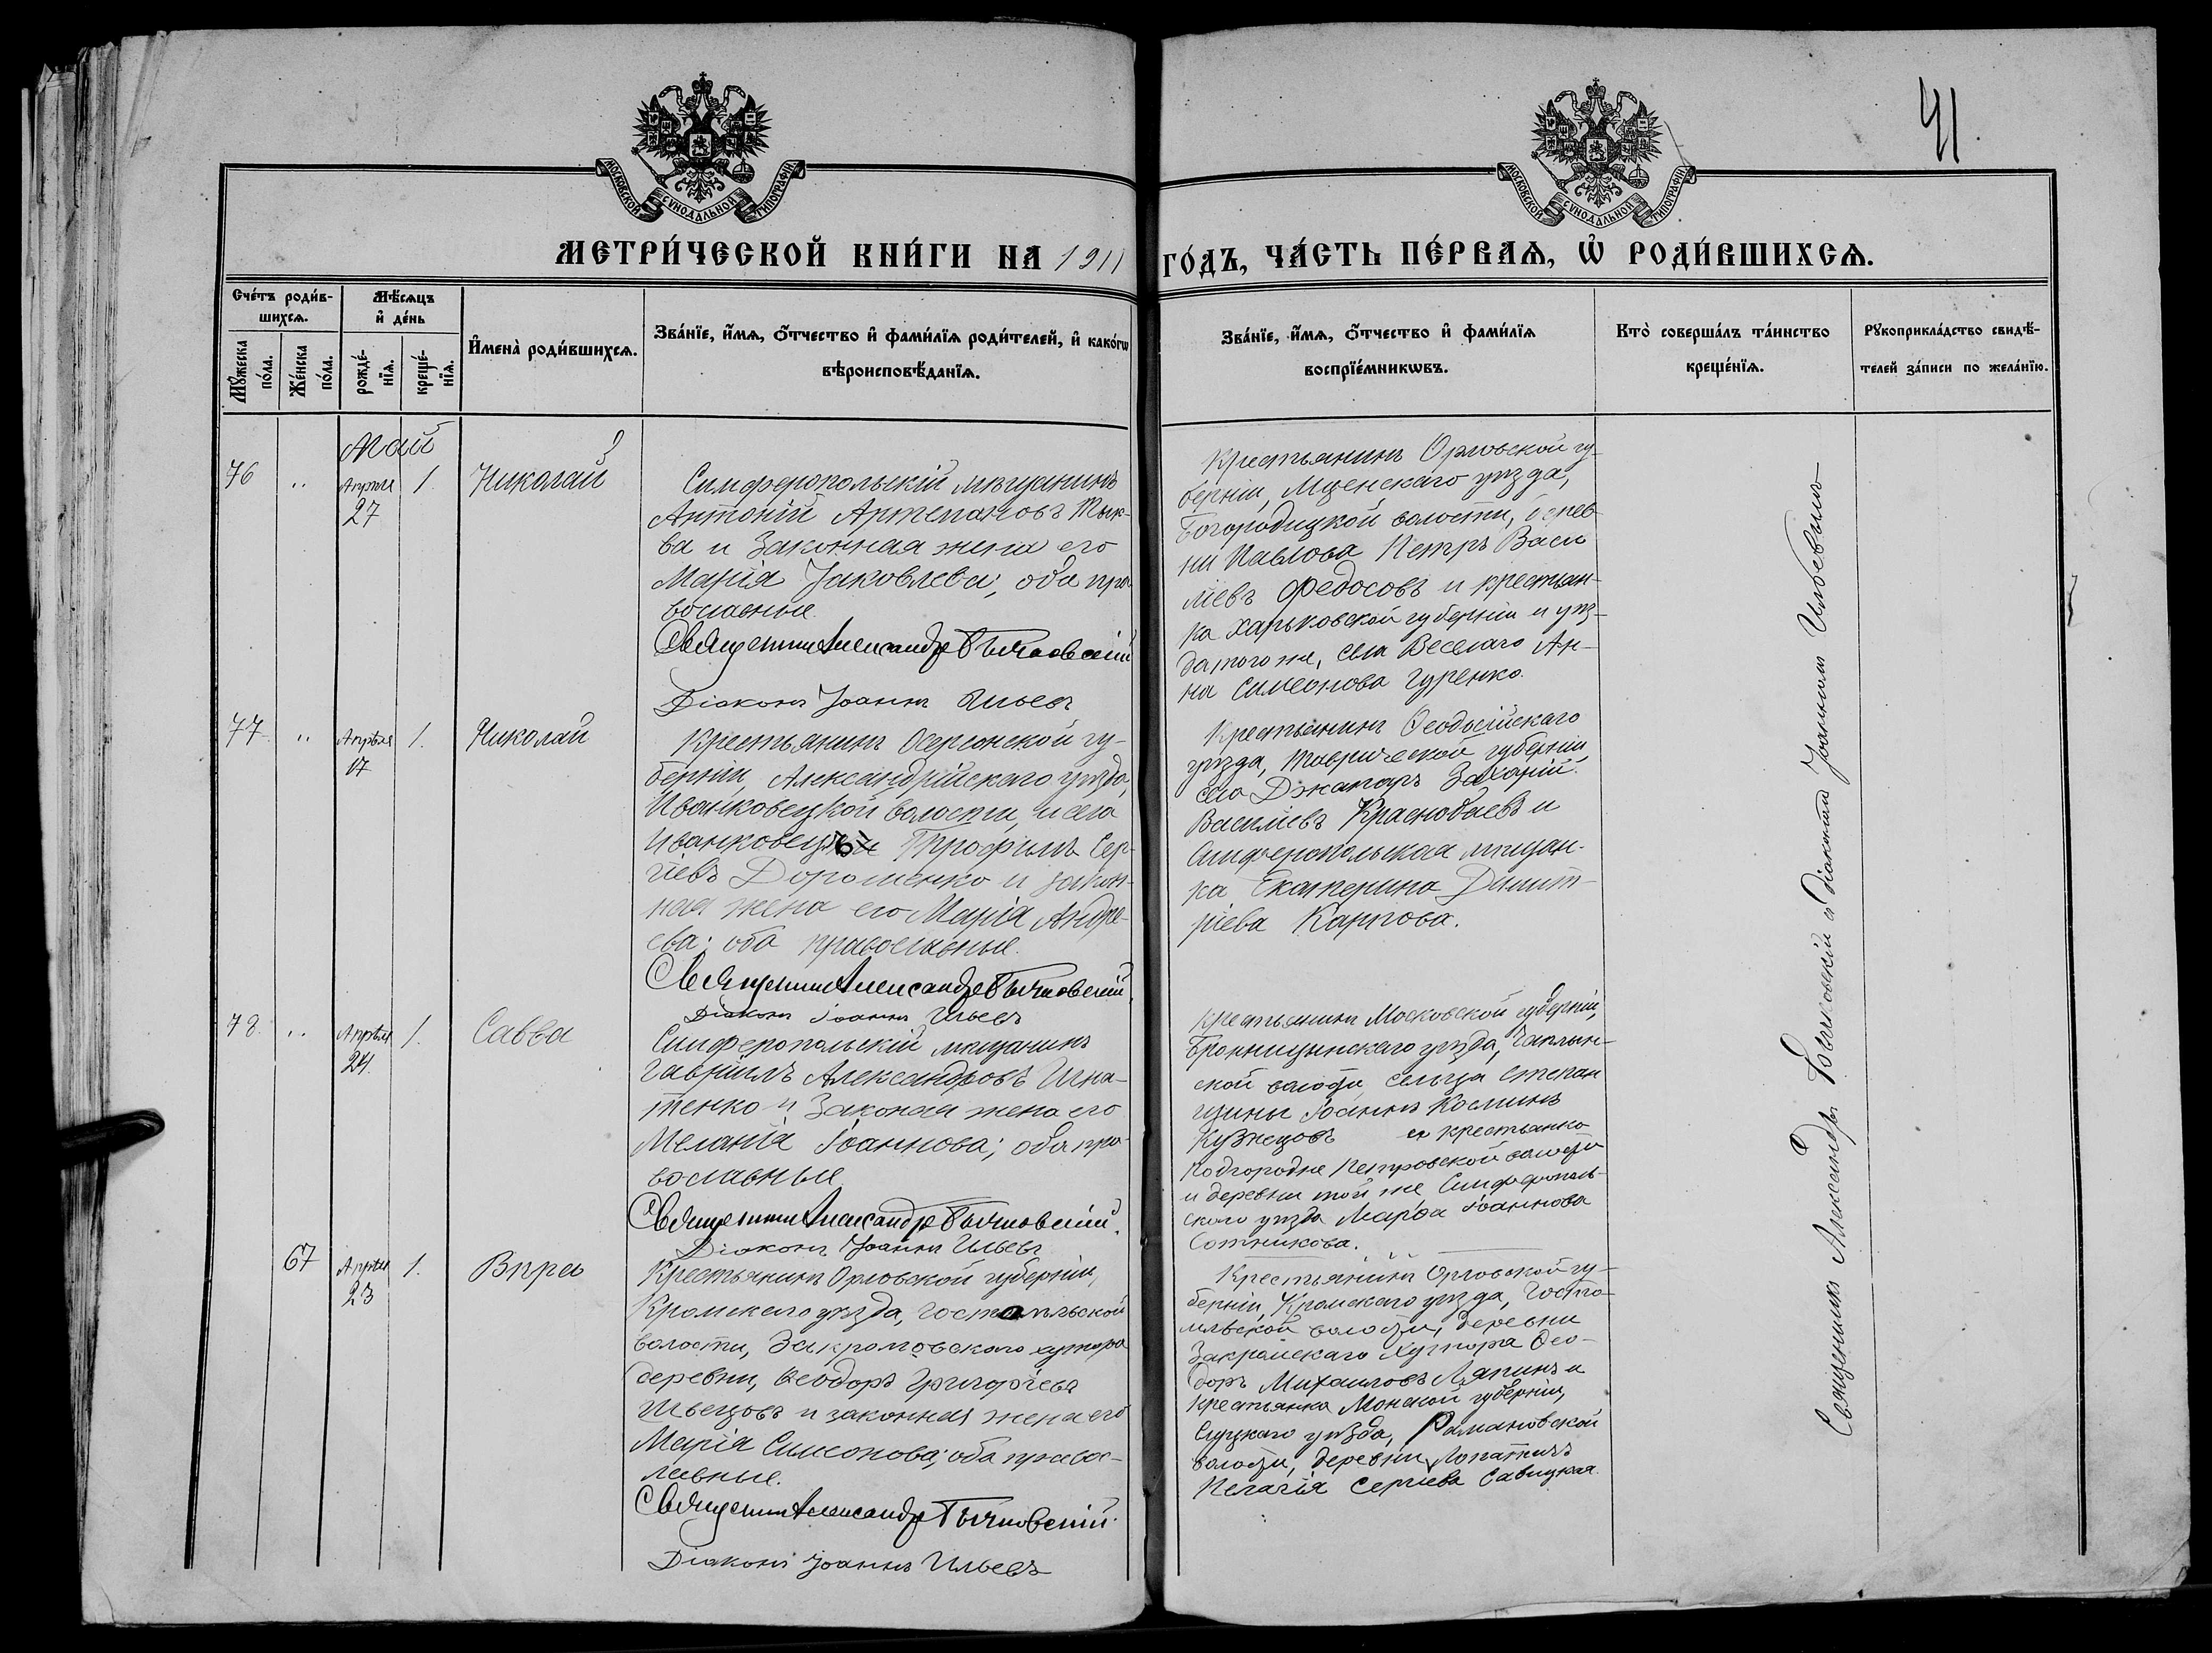 41
МОСКОВСКОЙ СѴНОДАЛЬНОЙ ТИПОГРАФІИ
МОСКОВСКОЙ СѴНОДАЛЬНОЙ ТИПОГРАФІИ
МЕТРИ́ЧЕСКОЙ КНИ́ГИ НА 1911 ГО́ДЪ, ЧА́СТЬ ПЕ́РВАѦ, Ѡ҆ РОДИ́ВШИХСѦ.
Сче́тъ роди́в-
шихсѧ.
Мꙋ́жеска
по́ла.
Же́нска
по́ла.
Мѣ́сѧцъ
и҆ де́нь
рожде́-
нїѧ.
креще́-
нїѧ.
И҆мена̀ роди́вшихсѧ.
Зва́нїе, и҆́мѧ, ѻ҆́тчество и҆ фами́лїѧ роди́телей, и҆ како́гѡ
вѣроисповѣ́данїѧ.
Зва́нїе, и҆́мѧ, ѻ҆́тчество и҆ фами́лїѧ
воспрїе́мникѡвъ.
Кто̀ соверша́лъ та́инство
креще́нїѧ.
Рꙋкоприкла́дство свидѣ́-
телей за́писи по жела́нїю.
Май
76 „ Апрѣля 1. Николай
27
Симферопольскій мѣщанинъ
Антоній Артемановъ Тык-
ва и законная жена его
Марія Іаковлева; оба пра-
вославные.
Священникъ Александръ Бычковскій
Діаконъ Іоаннъ Ильевъ
Крестьянинъ Орловской гу-
берніи, Мценскаго уѣзда,
Богородицкой волости, дерев-
ни Павлова Петръ Васи
ліевъ Федосовъ и крестьян-
ка Харьковской губерніи и уѣз-
да того же, села Веселаго Ан-
на Симеонова Гуренко.
77 „ Апрѣля 1. Николай
17
Крестьянинъ Херсонской гу-
берніи, Александрійскаго уѣзда,
Иванковецкой волости, и села
Трофимъ Сер-
гіевъ Дорошенко и закон-
ная жена его Марія Андре-
ева; оба православные.
Священникъ Александръ Бычковскій
Діаконъ Іоаннъ Ильевъ
Крестьянинъ Ѳеодосійскаго
уѣзда, Таврической губерніи,
село Джапаръ Захарій
Василіевъ Краснобаевъ и
Симферопольская мѣщан-
ка Екатерина Димит-
ріева Карпова.
78. „ Апрѣля 1. Савва
24.
Симферопольскій мѣщанинъ
Гавріилъ Александровъ Игна-
тенко и законая жена его
Меланія Іоаннова; оба пра-
вославные
Священникъ Александръ Бычковскій.
Діаконъ Іоаннъ Ильевъ
Крестьянинъ Московской губерніи,
Бронницынскаго уѣзда, Чаплын-
ской волости, сельца Степан
щины Іоаннъ Косминъ
Кузнецовъ и крестьянка
Подгородне Петровской волости
и деревни той же Симферополь-
скаго уѣзда Марѳа Іоаннова
Сотникова.
67 Апрѣля 1. Вѣра
23
Крестьянинъ Орловской губерніи,
Кромскаго уѣзда, Гостомльской
волости, Закромовскаго хутора
деревни, Ѳеодоръ Григорьевъ
Швецовъ и законная жена его
Марія Симеонова; оба правос-
лавные.
Священникъ Александръ Бычковскій.
Діаконъ Іоаннъ Ильевъ
Крестьянинъ Орловской гу-
берніи, Кромскаго уѣзда, Гостом-
льской волости, деревни
Закромскаго Хутора Ѳео-
доръ Михаиловъ Ляпинъ и
крестьянка Минской губерніи,
Слуцкаго уѣзда, Романовской
волости, деревни Лопатичъ
Пелагія Сергіева Савицкая.
Священникъ Александръ Бычковскій и діаконъ Іоанномъ Ильевымъ